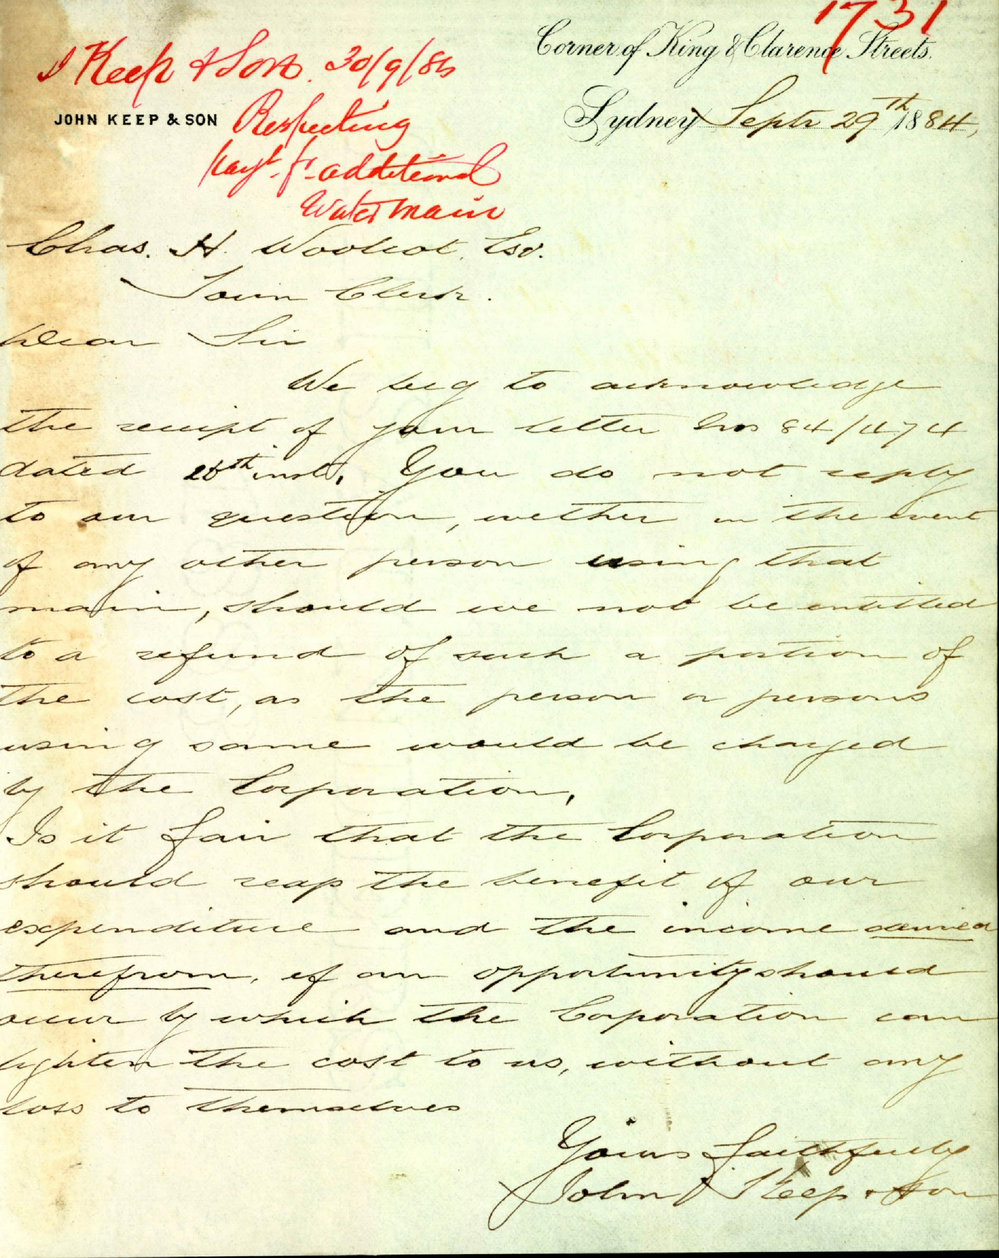 1731
Corner of King & Clarence Streets.
J Keep & Son. 30/9/84
JOHN KEEP & SON
Sydney Septr 29th 1884,
Respecting
payt fr additional
Water main
Chas. H. Woolcot, Esq.
Town Clerk.
Dear Sir
We beg to acknowledge
the receipt of your letter No 84/1474
dated 26th inst. You do not reply
to our question, wether in the event
of any other person using that
main, should we not be entitled
to a refund of such a portion of
the cost, as the person or persons
using same would be charged
by the Corporation.
Is it fair that the Corporation
should reap the benefit of our
expenditure and the income derived
therefrom, if an opportunity should
occur by which the Corporation can
lighten the cost to us, without any
loss to themselves
Yours faithfully
John Keep & Son